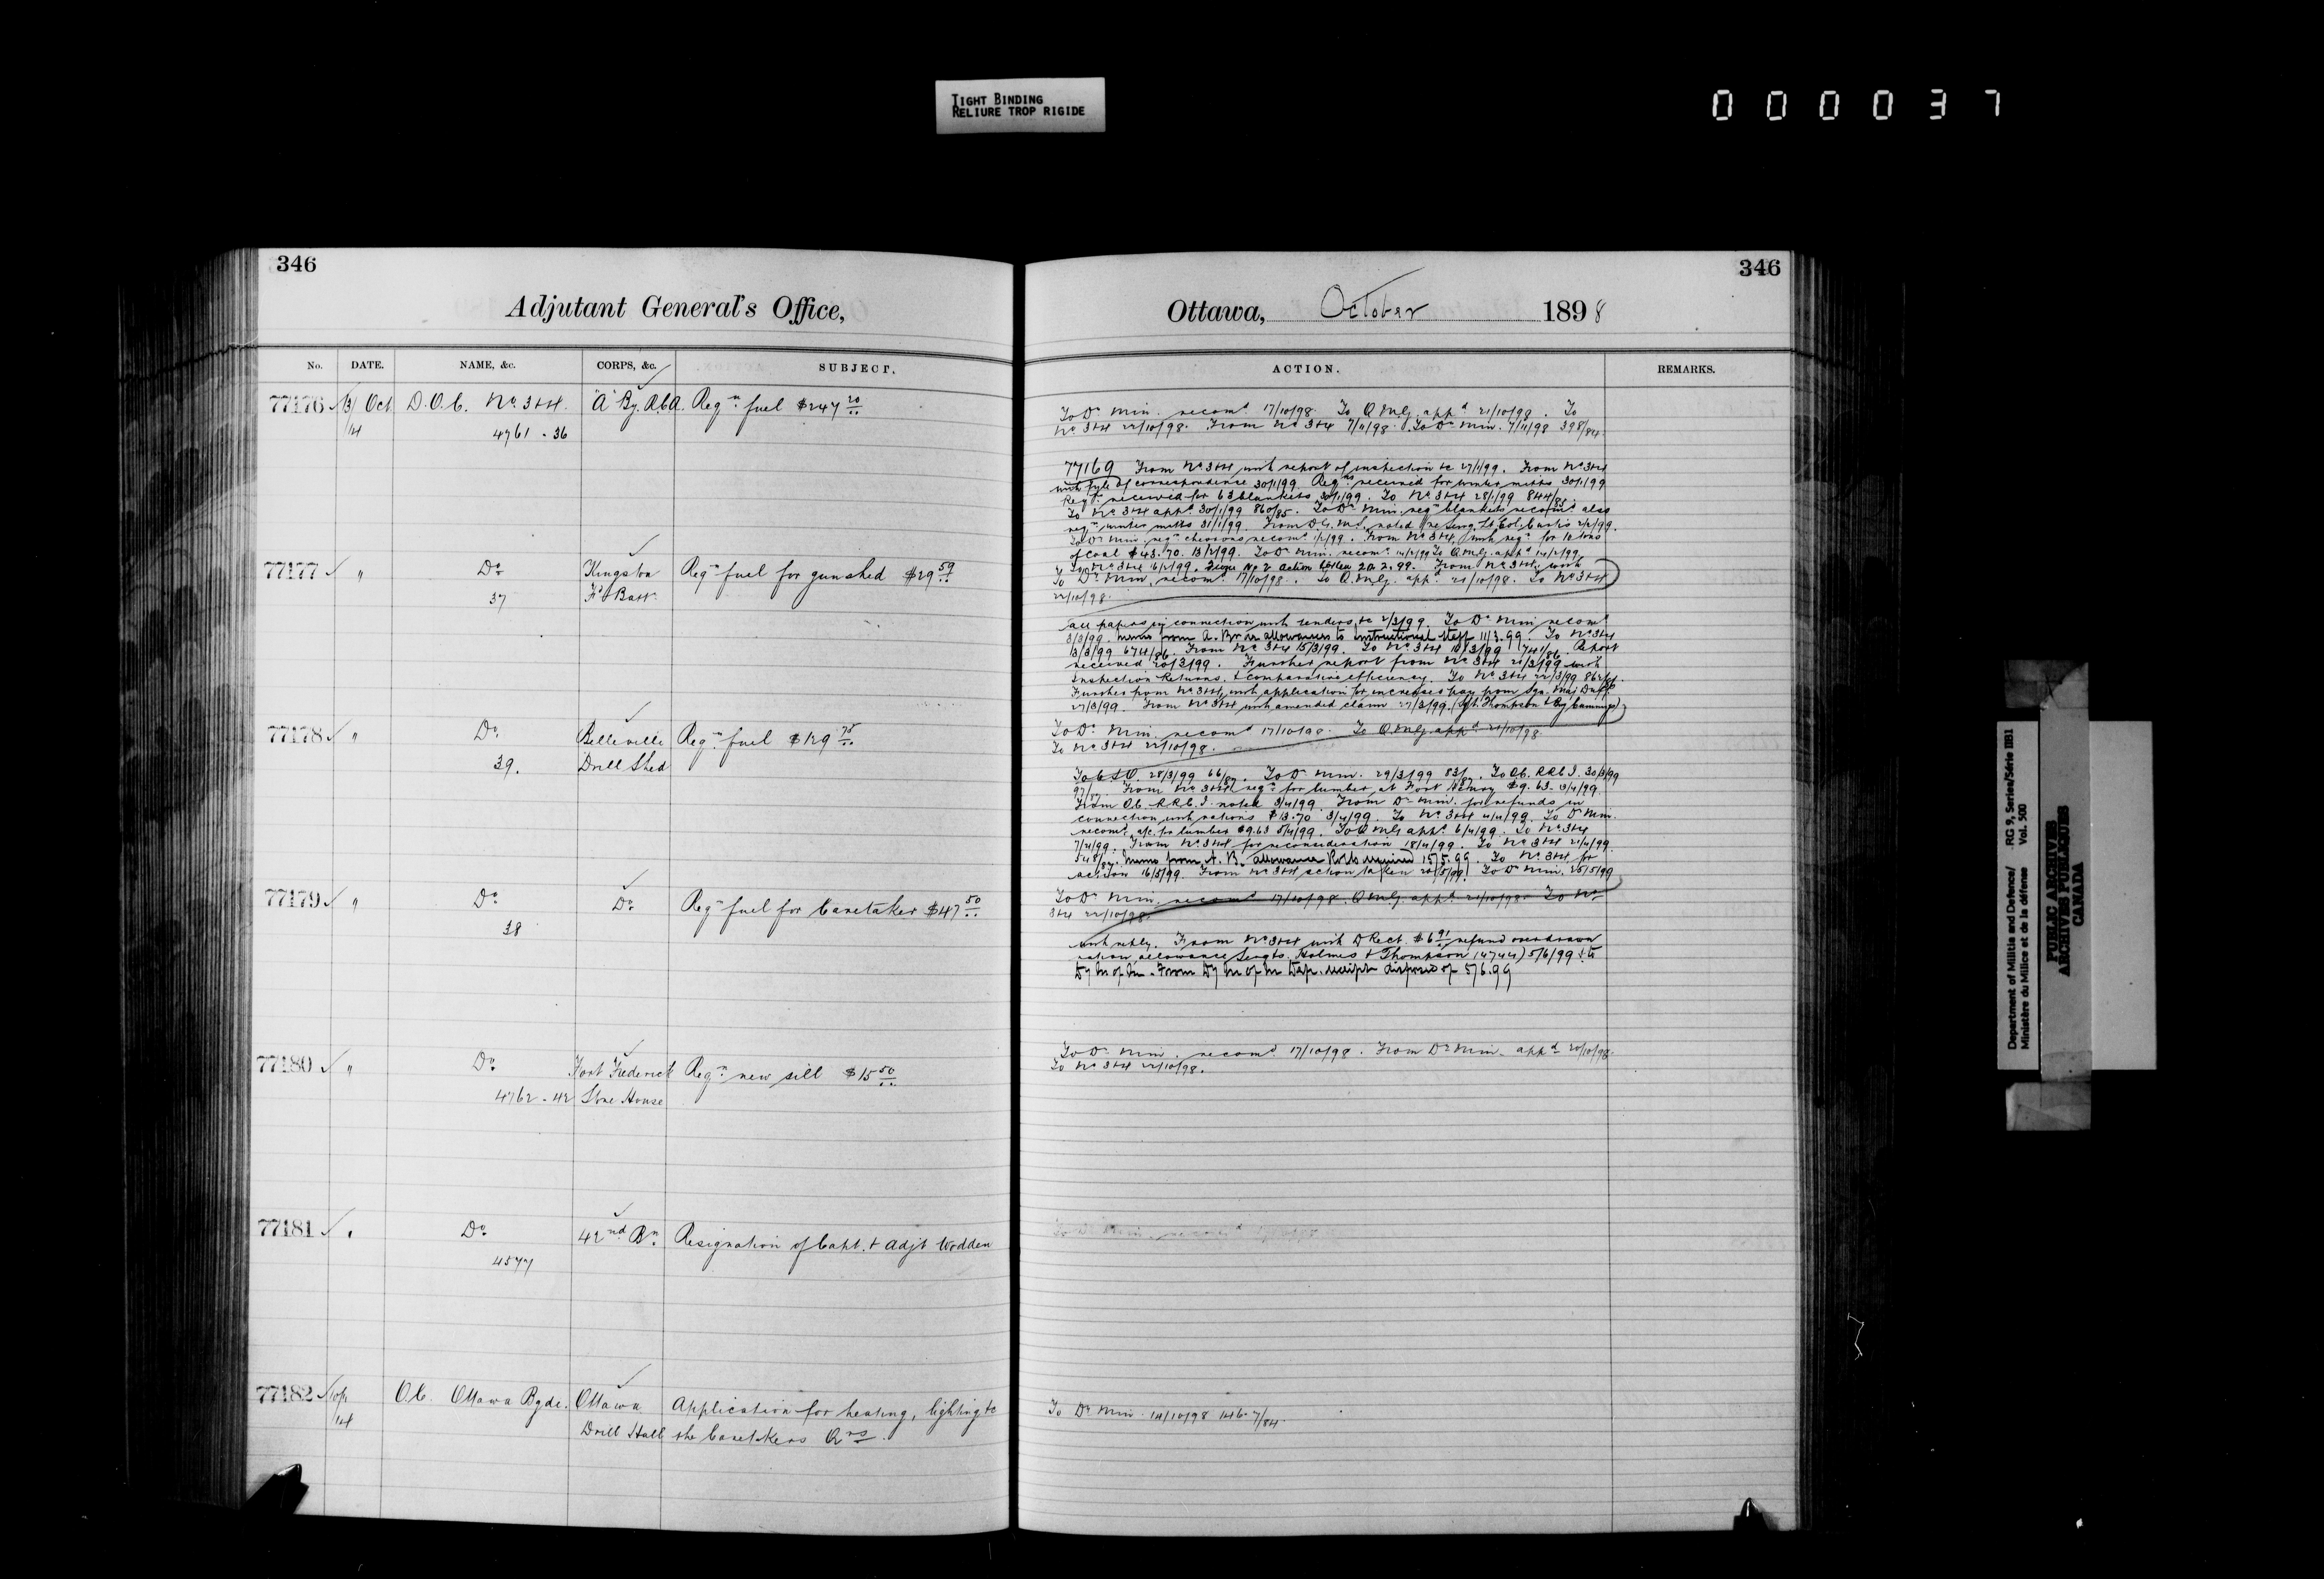 TIGHT BINDING
RELIURE TROP RIGIDE
000037
346
Adjutant General's Office,
No. DATE. NAME, &c. CORPS, &c. SUBJECT.
77176 13/14 Oct D.O.C. No. 3 & 4. "A" By. R.C.A. Reqn. fuel $247 20
4761 - 36
77177 " Do. Kingston Reqn. fuel for gunshed $29 59
37 Fd. Batt.
77178 " Do. Belleville Reqn. fuel $129 75
39. Drill Shed
77179 " Do. Do. Reqn. fuel for Caretaker $47 50
38
77180 " Do. Fort Frederick Reqn. new sill $15 50
4762 - 42 Stone House
77181 " Do. 42nd Bn. Resignation of Capt. & Adjt Wodden
4577
77182 O.C. Ottawa Bgde. Ottawa Application for heating, lighting &c
14 Drill Hall the Caretakers Qrs.
346
Ottawa, October 1898
ACTION. REMARKS.
To Dr. Min. recomd. 17/10/98. To Q.M.G. appd. 21/10/98. To
No. 3 & 4 22/10/98. From No 3 & 4 7/11/98. To Dr. Min. 7/11/98 398/84.
77169 From No. 3 & 4 with report of inspection &c 27/1/99. From No. 3 & 4
with fyle of correspondence 30/1/99. Reqns. received for winter mitts 30/1/99
Reqn. received for 63 blankets 30/1/99. To No. 3 & 4 28/1/99 844/85.
To No. 3 & 4 appd. 30/1/99 860/85. To Dr. Min. reqn. blankets recomd. also
reqn. winter mitts 31/1/99. From D.G.M.S. noted re Surg. Lt. Col. 2/2/99.
To Dr. Min. reqn. recomd. 1/2/99. From No. 3 & 4, with reqn. for 10 tons
of coal $43.70. 13/2/99. To Dr. Min. recomd. 14/2/99 To Q.M.G. appd. 14/2/99
To No. 3 & 4 16/2/99. action 20.2.99. From No 3 & 4. with
To Dr. Min. recomd. 17/10/98. To Q.M.G. appd. 21/10/98. To No. 3 & 4
22/10/98.
all papers in connection with tenders &c 2/3/99. To Dr. Min recomd.
3/3/99. Memo from A. Br re allowances to Instructional Staff 11/3.99. To No. 3 & 4
13/3/99 674/86. From No. 3 & 4 15/3/99. To No. 3 & 4 741/86. Report
received 20/3/99. Further report from No. 3 & 4 21/3/99 with
Inspection Returns. & comparative efficiency. To No. 3 & 4 22/3/99
Further from No. 3 & 4, with application for increased pay from Sgn. Maj.
27/3/99. From No. 3 & 4 with amended claim 27/3/99.
To Dr. Min. recomd. 17/10/98. To Q.M.G. appd. 21/10/98.
To No. 3 & 4 22/10/98.
28/3/99 66/87. To Dr. Min. 29/3/99 83/87. To O.C. R.R.C.I. 30/3/99
97/87. From No. 3 & 4 reqn. for lumber at Fort Henry $9.63. 3/4/99.
From O.C. R.R.C.I. noted 3/4/99. From Dr. Min. for refunds in
connection with rations $13.70 3/4/99. To No. 3 & 4 4/4/99. To Dr. Min.
recomd. a/c. for lumber $9.63 5/4/99. To Q.M.G appd. 6/4/99. To No. 3 & 4
7/4/99. From No. 3 & 4 for reconsideration 18/4/99. To No. 3 & 4 21/4/99
Memo from A. B. allowance Rolls 15/5.99. To No. 3 & 4 for
action 16/5/99. From No. 3 & 4 action taken To Dr. Min. 25/5/99
To Dr. Min. recomd. 17/10/98. Q.M.G. appd. 21/10/98. To No.
3 & 4 22/10/98.
with reply. From No. 3 & 4 with D Rect. $6 91 refund overdrawn
ration allowance Sergts. Holmes & Thompson (4744) 5/6/99 & to
Dy M of M. From Dy M of M Dep. receipt disposed of 5/6.99
To Dr. Min. recomd. 17/10/98. From Dr. Min. appd. 20/10/98.
To No. 3 & 4 22/10/98.
To Dr. Min. 14/10/98 146.7/84.
Department of Militia and Defence/ RG 9, Series/Série IIB1
Ministère du Milice et de la défense Vol. 500
PUBLIC ARCHIVES
ARCHIVES PUBLIQUES
CANADA